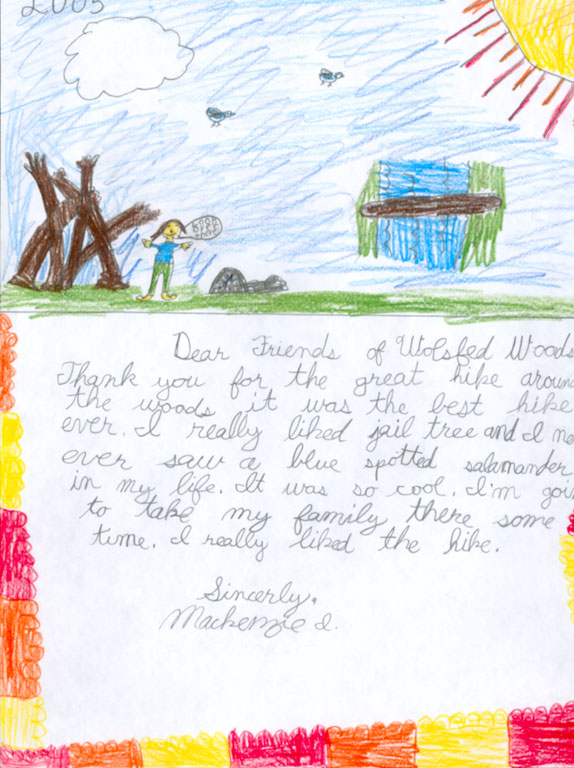 2005
Dear Friends of Wolsfed Woods
Thank you for the great hike aroun
the woods it was the best hike
ever. I really liked jail tree and I ne
ever saw a blue spotted salamander
in my life. It was so cool. I'm goin
to take my family there some
time. I really liked the hike.
Sincerly,
Mackenzie I.